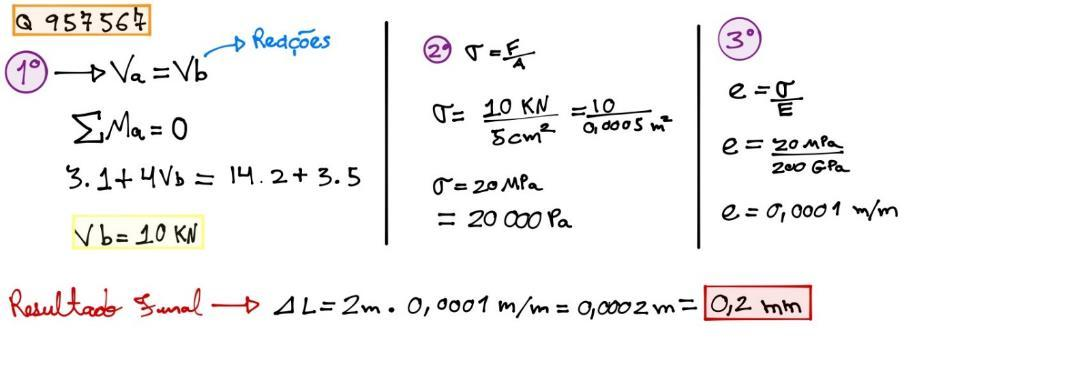 Q 957567
1º → Va = Vb → Reações
ΣMa = 0
3.1 + 4Vb = 14.2 + 3.5
Vb = 10 KN
2º σ = F/A
σ = 10 KN / 5cm² = 10 / 0,0005 m²
σ = 20 MPa
= 20 000 Pa
3º
e = σ/E
e = 20 MPa / 200 GPa
e = 0,0001 m/m
Resultado Final → ΔL = 2m . 0,0001 m/m = 0,0002 m = 0,2 mm